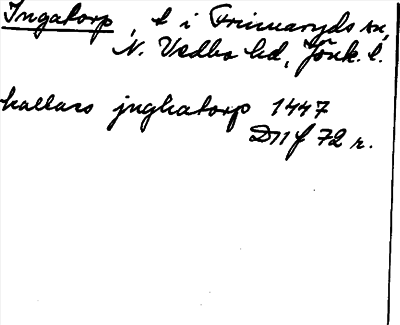 Ingatorp, t i Frinnaryds sn,
N. Vedbo hd, Jönk. l.
kallas jnghatorp 1447
D 11 f 72 r.